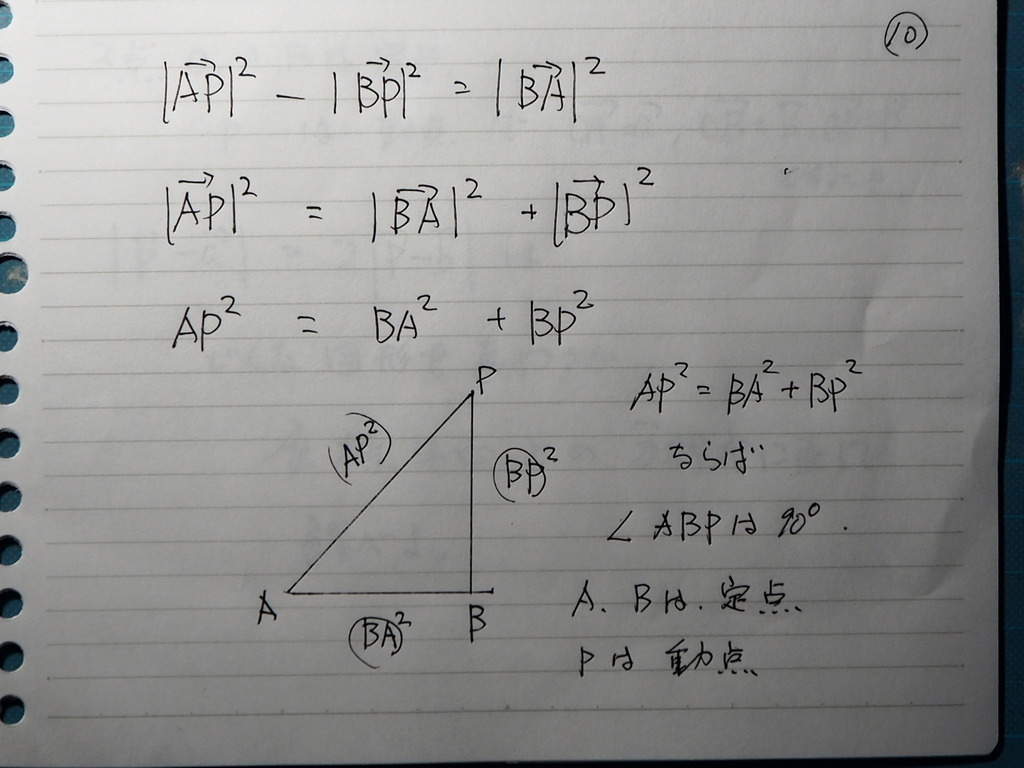 ⑩
|AP→|² − |BP→|² = |BA→|²
|AP→|² = |BA→|² + |BP→|²
AP² = BA² + BP²
P
AP² = BA² + BP²
(AP²)
(BP)²
ならば
∠ABPは90°.
A
(BA)²
B
A、Bは、定点、
Pは動点、